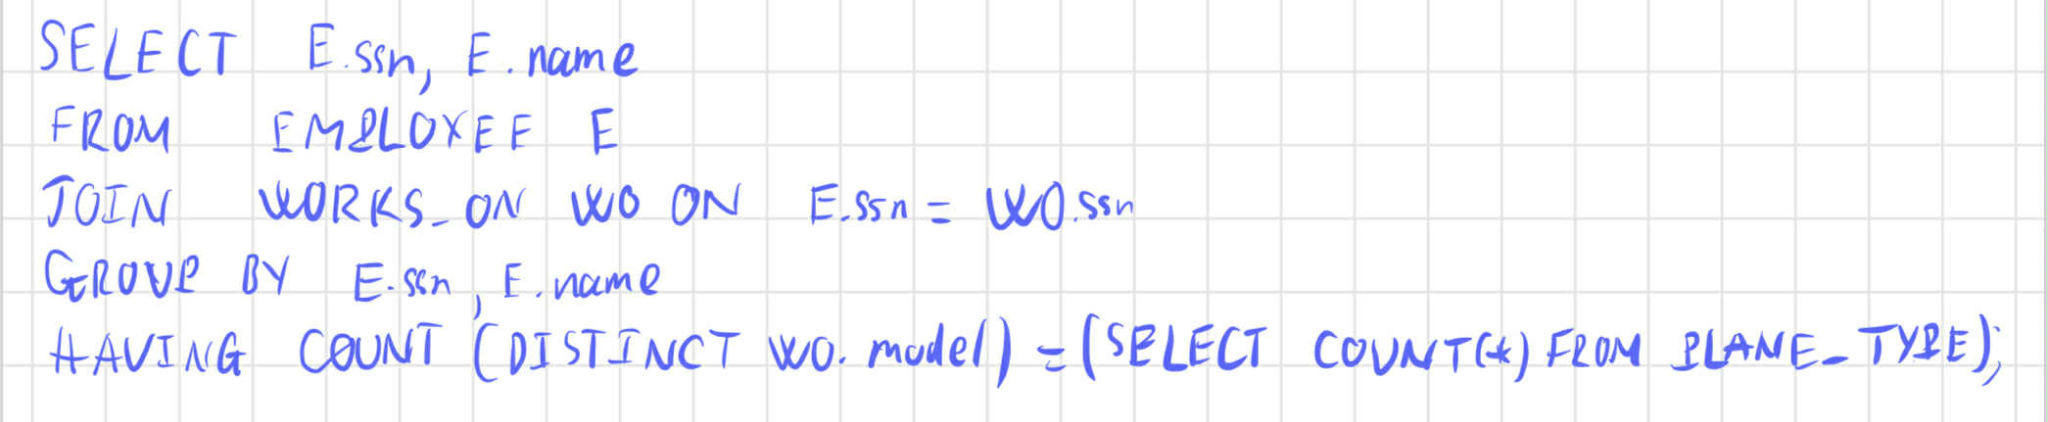 SELECT E.ssn, E.name
FROM EMPLOYEE E
JOIN WORKS_ON WO ON E.ssn = WO.ssn
GROUP BY E.ssn, E.name
HAVING COUNT (DISTINCT WO.model) = (SELECT COUNT(*) FROM PLANE_TYPE);